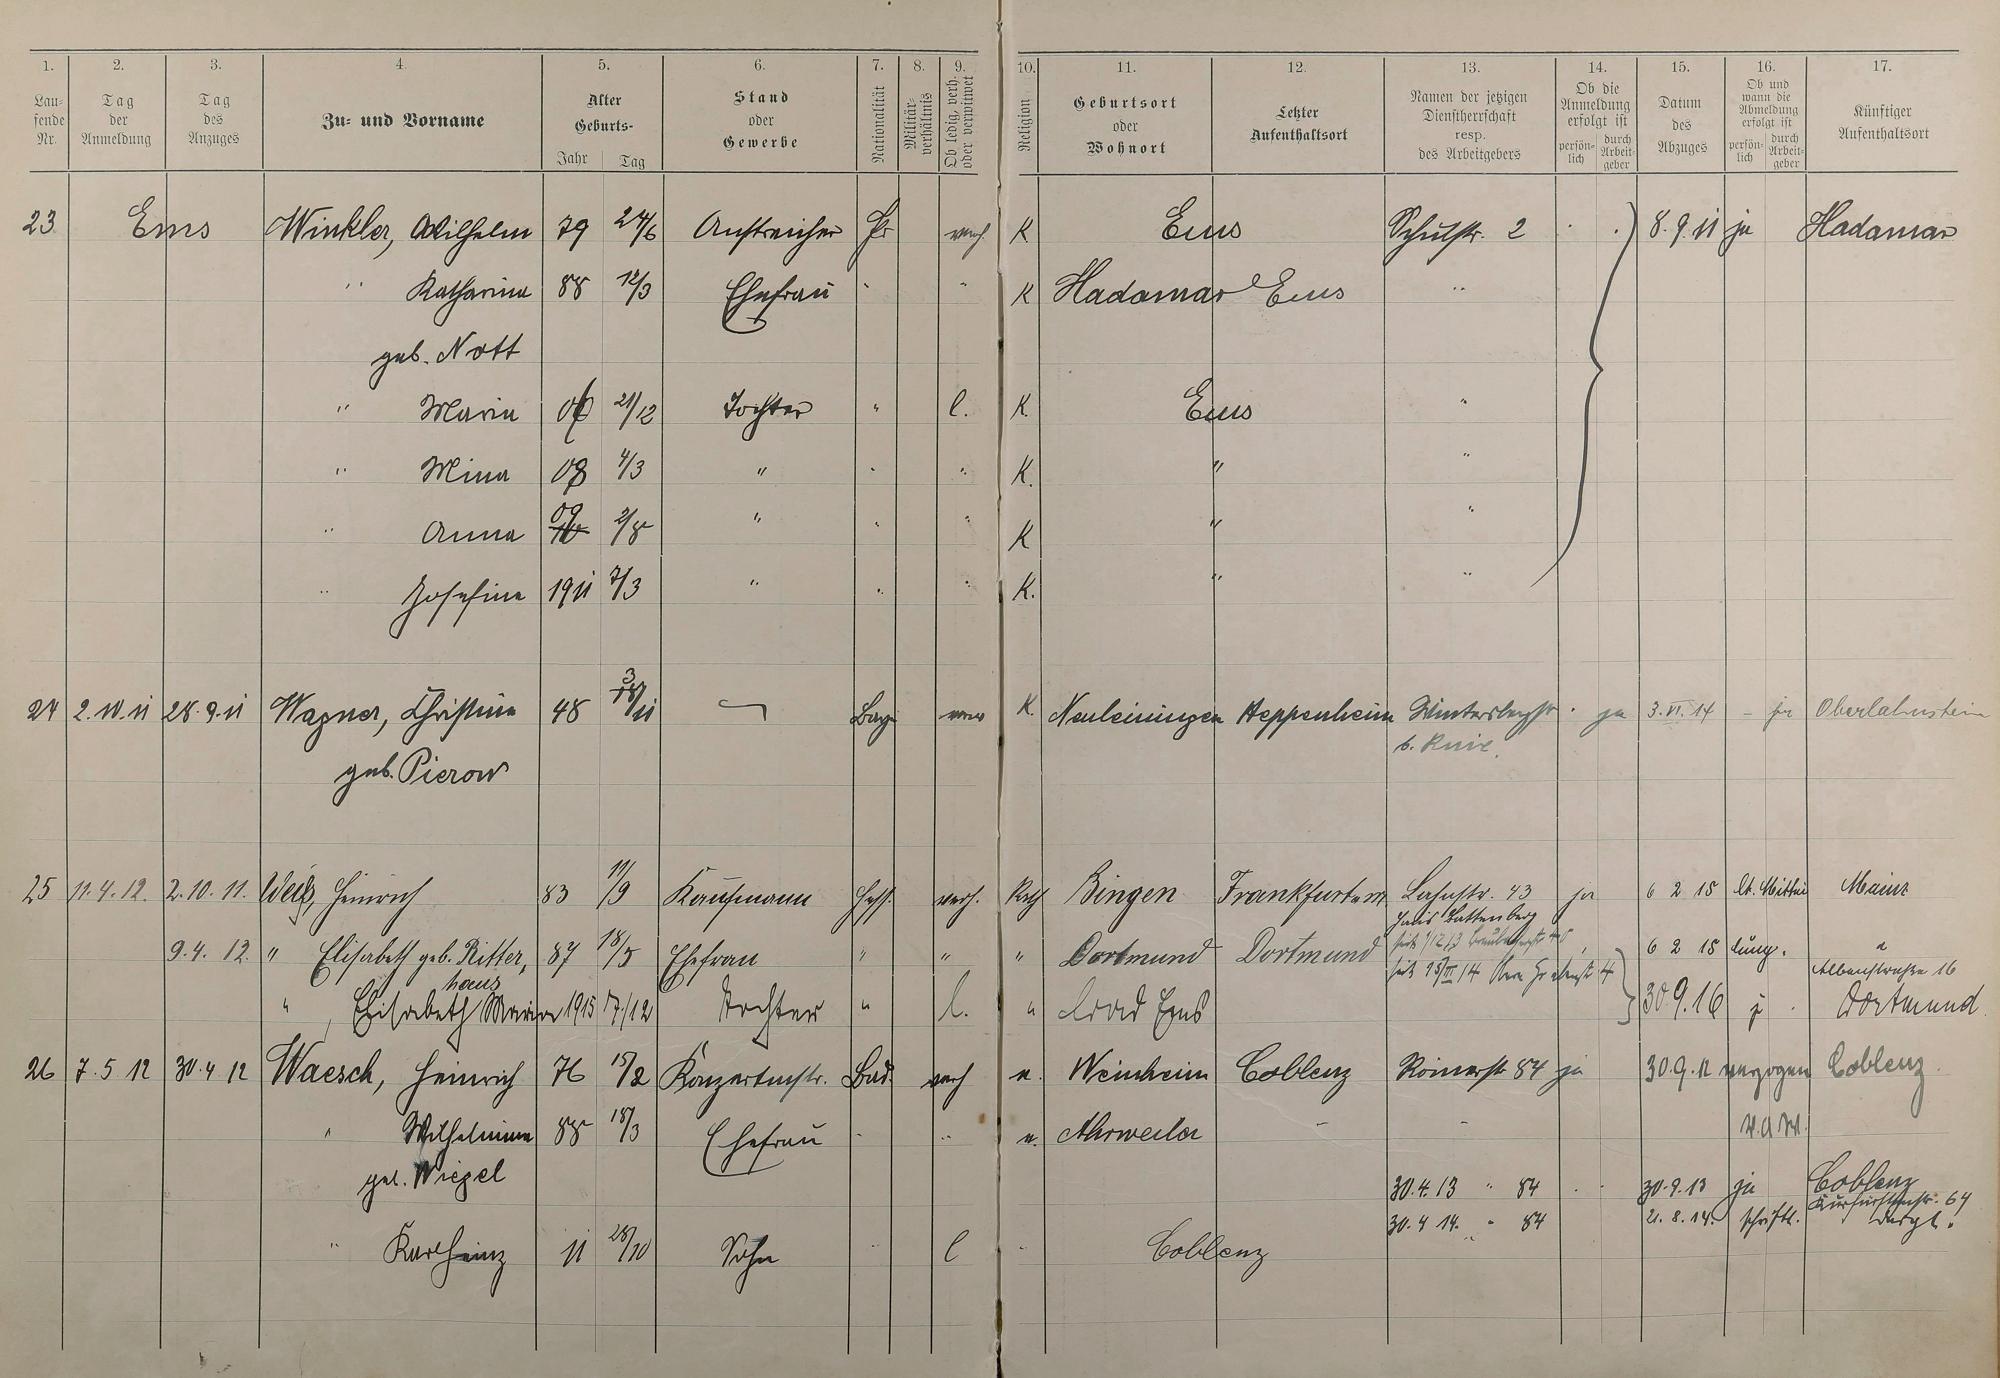 1. 2. 3. 4. 5. 6. 7. 8. 9. 10. 11. 12. 13. 14. 15. 16. 17.
Lau-
fende
Nr.
Tag
der
Anmeldung
Tag
des
Anzuges
Zu- und Vorname
Alter
Geburts-
Jahr Tag
Stand
oder
Gewerbe
Nationalität
Militär-
verhältnis
Ob ledig, verh.
oder verwitwet
Religion
Geburtsort
oder
Wohnort
Letzter
Aufenthaltsort
Namen der jetzigen
Dienstherrschaft
resp.
des Arbeitgebers
Ob die
Anmeldung
erfolgt ist
persön-
lich
durch
Arbeit-
geber
Datum
des
Abzuges
Ob und
wann die
Abmeldung
erfolgt ist
persön-
lich
durch
Arbeit-
geber
Künftiger
Aufenthaltsort
23 Ems Winkler, Wilhelm 79 24/6 Anstreicher Pr verh. K Ems Schulstr. 2 8.9.11 ja Hadamar
" Katharina 88 12/3 Ehefrau " " K Hadamar Ems "
geb. Nott
" Maria 06 21/12 Tochter " l. K. Ems "
" Mina 08 4/3 " " " K. " "
" Anna 09 2/8 " " " K " "
" Josefine 1911 7/3 " " " K. " "
24 2.10.11 28.9.11 Wagner, Christine 48 3/11 Bay. verw K. Neuleiningen Heppenheim Wintersbergstr. ja 3.VI.14 - ja Oberlahnstein
geb. Pierow
25 11.4.12. 2.10.11. Weis, Heinrich 83 11/9 Kaufmann Hess. verh. Kath Bingen Frankfurt a.M. Lahnstr. 43 ja 6 2 15 lt. Mittei Mainz
Haus Battenberg
9.4.12. " Elisabeth geb. Ritter, 87 18/5 Ehefrau " " " Dortmund Dortmund 6 2 15 lung. "
haus
seit 15/III 14 Obere Grabenstr 4
Albenstraße 16
" , Elisabeth Maria 1915 17/12 Tochter " l. " Bad Ems 30 9.16 j. Dortmund
26 7.5 12 30.4 12 Waesch, Heinrich 76 15/2 Konzertmstr. Bad. verh e. Weinheim Coblenz Römerstr. 84 ja 30.9.12 verzogen Coblenz.
" Wilhelmine 88 18/3 Ehefrau " " e. Ahrweiler - -
geb. Wiegel
30.4.13 " 84 30.9.13 ja Coblenz
Kurfürstenstr. 64
30.4 14. " 84 21.8.14. schriftl. desgl.
" Karlheinz 11 28/10 Sohn " l " Coblenz